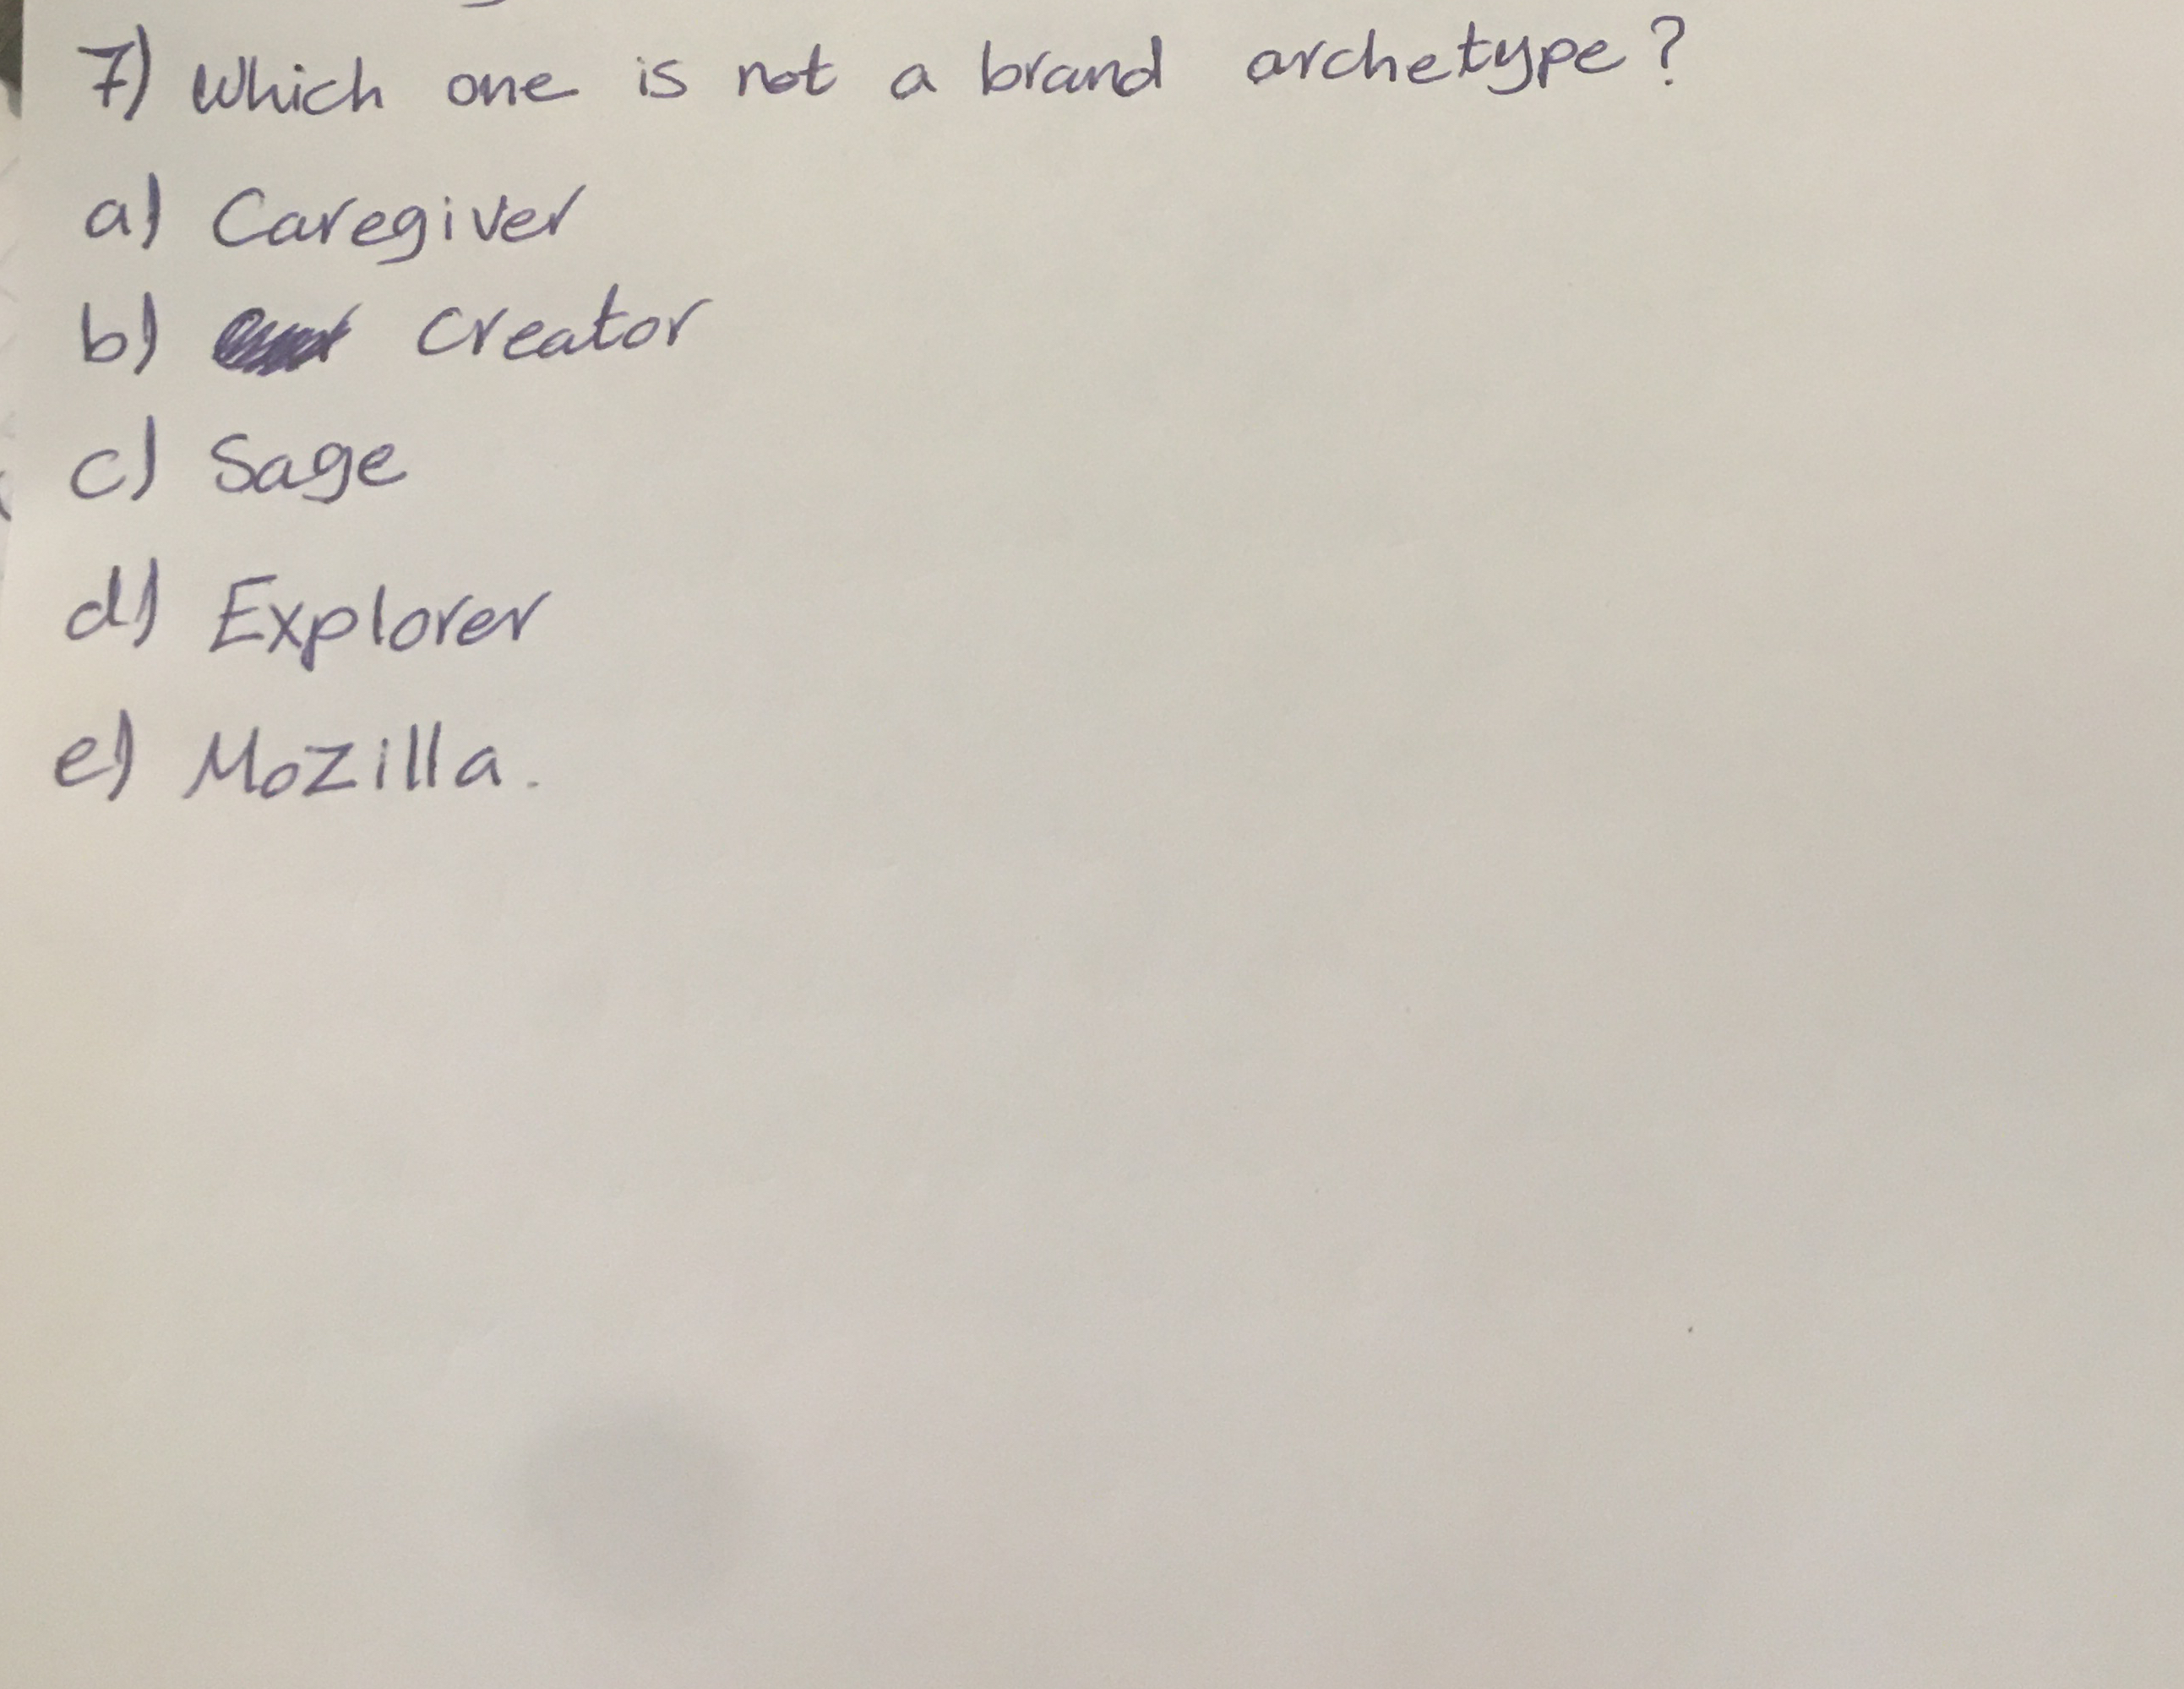 7) Which one is not a brand archetype?
a) Caregiver
b) Creator
c) Sage
d) Explorer
e) Mozilla.